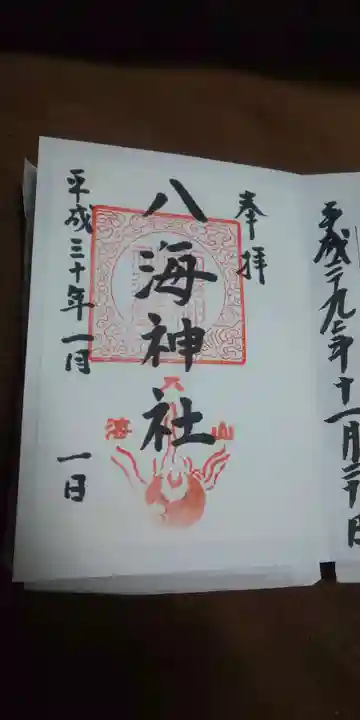 平成二十九年十一月二十日
奉拝
八海神社
八
海山
平成三十年一月一日